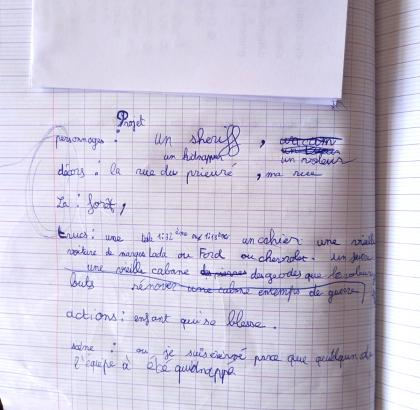 Projet
personnages : un sheriff,
un kidnappeur un voleur
décors : la rue du prieuré, ma rue
La : forêt,
trucs : une un cahier une vieille
voiture de marques lada ou Ford ou chevrolet. un
une vieille cabane des geodes que le voleur
buts rénover une cabane en temps de guerre
actions : enfant qui se blesse.
scène : ou je suis énervé parce que quelqu'un de
l'équipe à été quidnappé